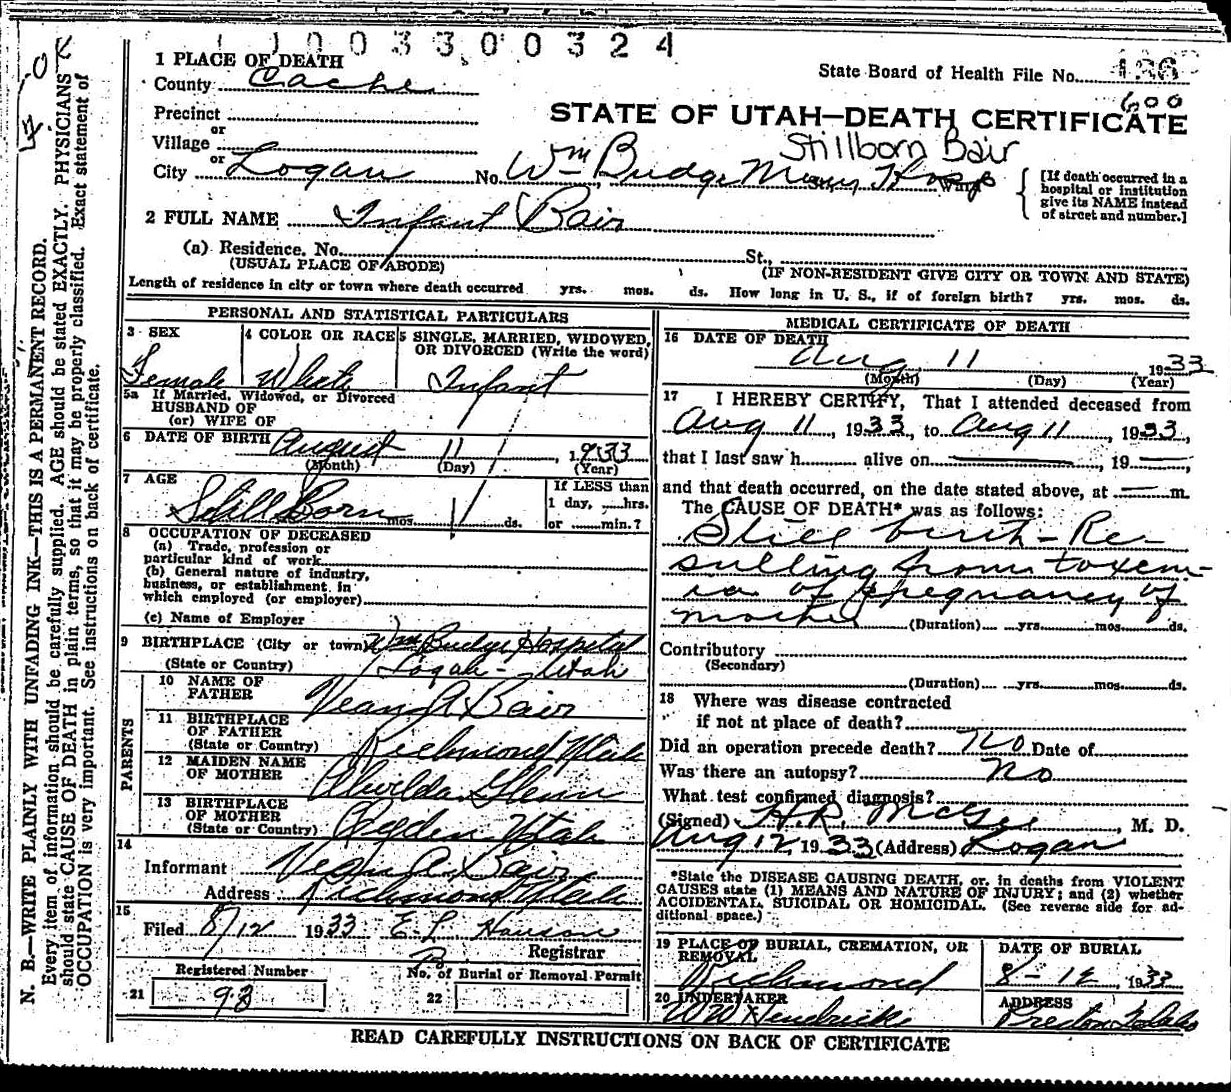 1 1 0 0 3 3 0 0 3 2 4
1 PLACE OF DEATH
County Cache
State Board of Health File No. 126
600
Precinct
or
Village
or
City Logan
STATE OF UTAH—DEATH CERTIFICATE
Stillborn Bair
No. Wm Budge Mem Hosp
[If death occurred in a
hospital or institution
give its NAME instead
of street and number.]
2 FULL NAME Infant Bair
(a) Residence. No. St.,
(USUAL PLACE OF ABODE) (IF NON-RESIDENT GIVE CITY OR TOWN AND STATE)
Length of residence in city or town where death occurred yrs. mos. ds. How long in U. S., if of foreign birth? yrs. mos. ds.
PERSONAL AND STATISTICAL PARTICULARS
3 SEX
Female
4 COLOR OR RACE
White
5 SINGLE, MARRIED, WIDOWED,
OR DIVORCED (Write the word)
Infant
5a If Married, Widowed, or Divorced
HUSBAND OF
(or) WIFE OF
6 DATE OF BIRTH August 11, 1933
(Month) (Day) (Year)
7 AGE
Still Born mos. ds.
If LESS than
1 day, hrs.
or min.?
8 OCCUPATION OF DECEASED
(a) Trade, profession or
particular kind of work
(b) General nature of industry,
business, or establishment in
which employed (or employer)
(c) Name of Employer
9 BIRTHPLACE (City or town) Wm Budge Hospital
(State or Country) Logan - Utah
PARENTS
10 NAME OF
FATHER Vean A Bair
11 BIRTHPLACE
OF FATHER
(State or Country) Richmond Utah
12 MAIDEN NAME
OF MOTHER Alwilda Glenn
13 BIRTHPLACE
OF MOTHER
(State or Country) Ogden Utah
14
Informant Vean A. Bair
Address Richmond Utah
15
Filed 8/12 1933 E L Hanson
Registrar
Registered Number
21 93
No. of Burial or Removal Permit
22
MEDICAL CERTIFICATE OF DEATH
16 DATE OF DEATH
Aug 11 1933
(Month) (Day) (Year)
17 I HEREBY CERTIFY, That I attended deceased from
Aug 11, 1933, to Aug 11, 1933,
that I last saw h alive on , 19
and that death occurred, on the date stated above, at — m.
The CAUSE OF DEATH* was as follows:
Still birth - Re-
sulting from toxem-
ia of pregnancy of
mother
(Duration) yrs. mos. ds.
Contributory
(Secondary)
(Duration) yrs. mos. ds.
18 Where was disease contracted
if not at place of death?
Did an operation precede death? No Date of
Was there an autopsy? No
What test confirmed diagnosis?
(Signed) H.R. McGee, M. D.
Aug 12, 1933 (Address) Logan
*State the DISEASE CAUSING DEATH, or, in deaths from VIOLENT
CAUSES state (1) MEANS AND NATURE OF INJURY; and (2) whether
ACCIDENTAL, SUICIDAL OR HOMICIDAL. (See reverse side for ad-
ditional space.)
19 PLACE OF BURIAL, CREMATION, OR
REMOVAL
Richmond
DATE OF BURIAL
8-12, 1933
20 UNDERTAKER
WW Hendricks
ADDRESS
Preston Idaho
READ CAREFULLY INSTRUCTIONS ON BACK OF CERTIFICATE
N. B.—WRITE PLAINLY WITH UNFADING INK—THIS IS A PERMANENT RECORD.
Every item of information should be carefully supplied. AGE should be stated EXACTLY. PHYSICIANS
should state CAUSE OF DEATH in plain terms, so that it may be properly classified. Exact statement of
OCCUPATION is very important. See instructions on back of certificate.